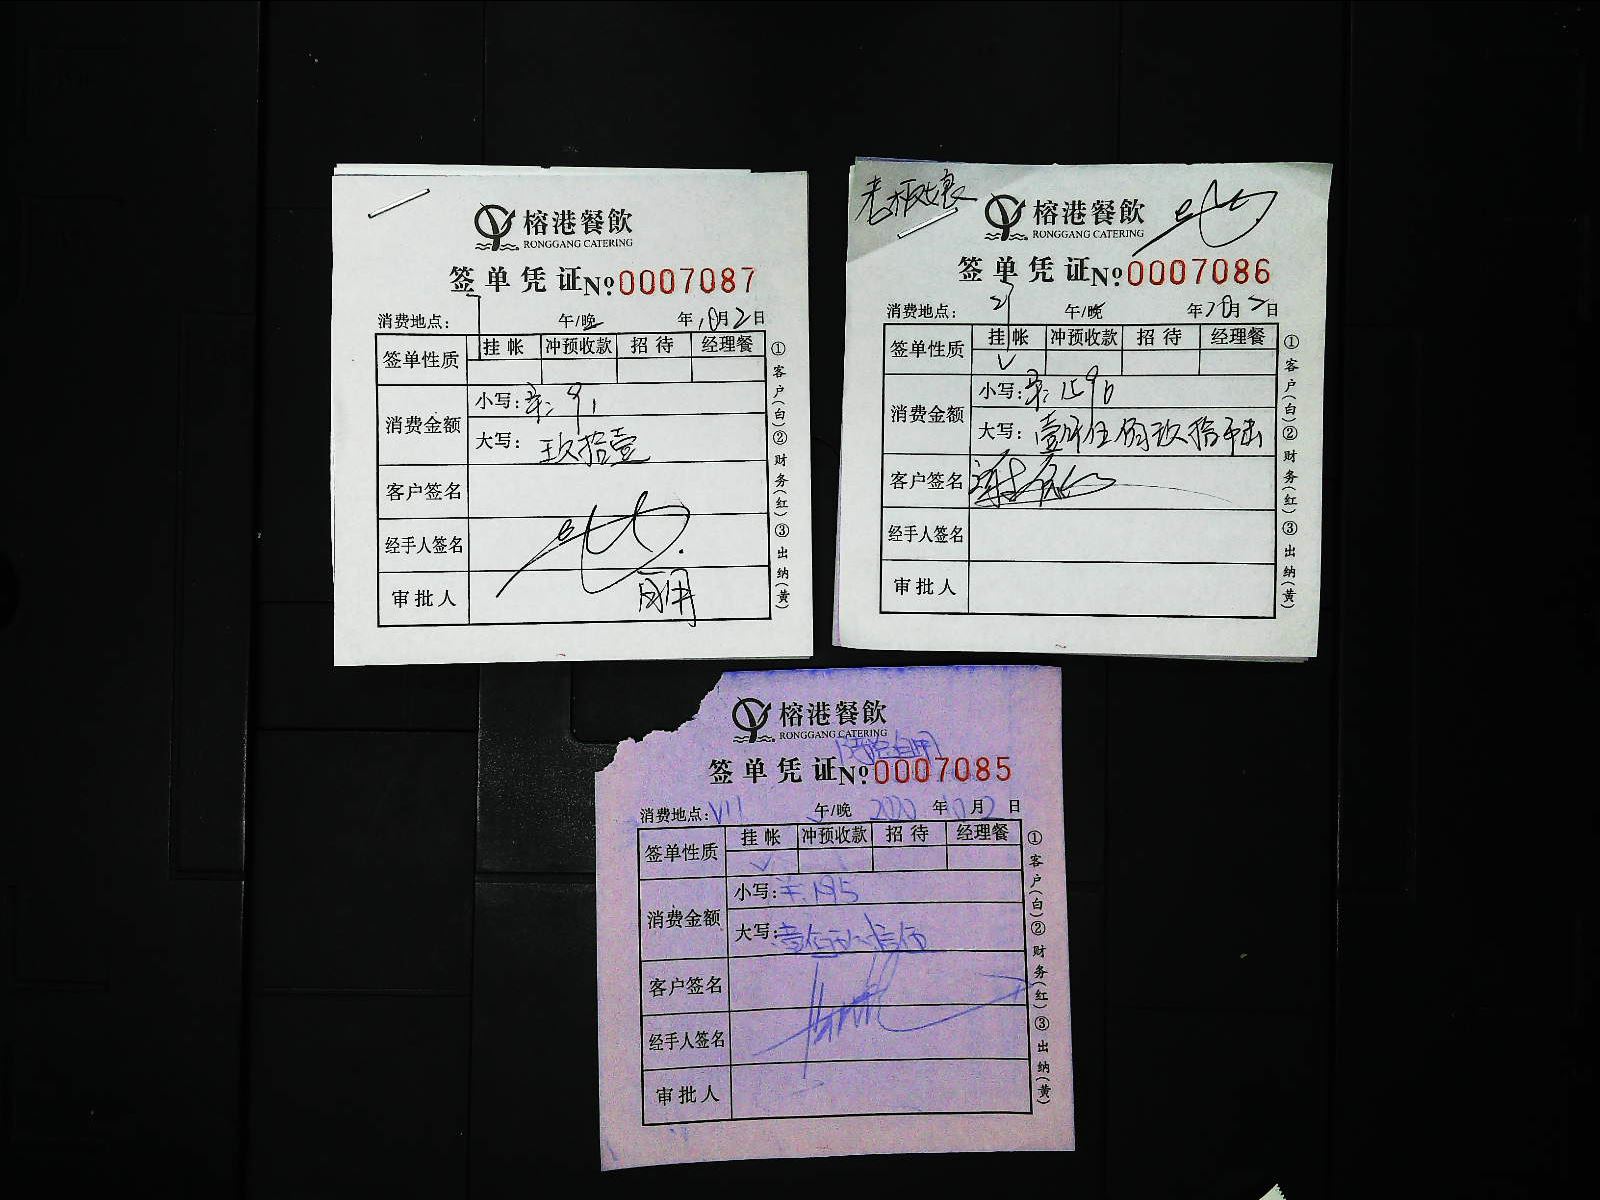 榕港餐飲
RONGGANG CATERING
签单凭证 No 0007087
消费地点: 午/晚 年10月2日
签单性质 挂帐 冲预收款 招待 经理餐
消费金额 小写: 91
大写: 玖拾壹
客户签名
经手人签名
审批人
①客户(白)②财务(红)③出纳(黄)
老板娘
榕港餐飲
RONGGANG CATERING
签单凭证 No 0007086
消费地点: 午/晚 年10月2日
签单性质 挂帐 冲预收款 招待 经理餐
消费金额 小写:
大写: 壹仟伍佰玖拾
客户签名
经手人签名
审批人
①客户(白)②财务(红)③出纳(黄)
榕港餐飲
RONGGANG CATERING
签单凭证 No 0007085
消费地点: V11 午/晚 2020年10月2日
签单性质 挂帐 冲预收款 招待 经理餐
消费金额 小写: ¥:195
大写:
客户签名
经手人签名
审批人
①客户(白)②财务(红)③出纳(黄)